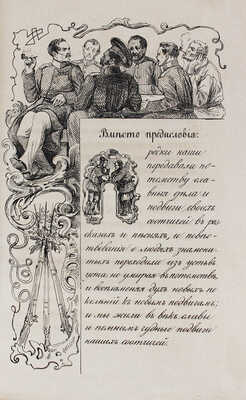 Вмѣсто предисловія:
Предки наши
передавали по-
томству сла-
вныя дѣла и
подвиги своихъ
соотчичей въ раз
сказахъ и пѣсняхъ, и повѣс-
твованія о людяхъ знамени
тыхъ переходили изъ устъ въ
уста не умирая въ потомствѣ,
и воспламеняя духъ новыхъ по
колѣній къ новымъ подвигамъ;
и мы жили въ вѣкъ славы
и помнимъ чудные подвиги
нашихъ соотчичей.